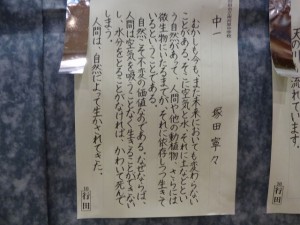 中一　塚田寧々
むかしも今もまた未来においても変わらない
ことがある。そこに空気と水、それに土などとい
う自然があって、人間や他の動植物、さらには
微生物にいたるまでが、それに依存しつつ生きて
いるということである。
自然こそ不変の価値なのである。なぜならば、
人間は空気を吸うことなく生きることができない
し、水分をとることがなければ、かわいて死んで
しまう。
人間は、自然によって生かされてきた。
行田